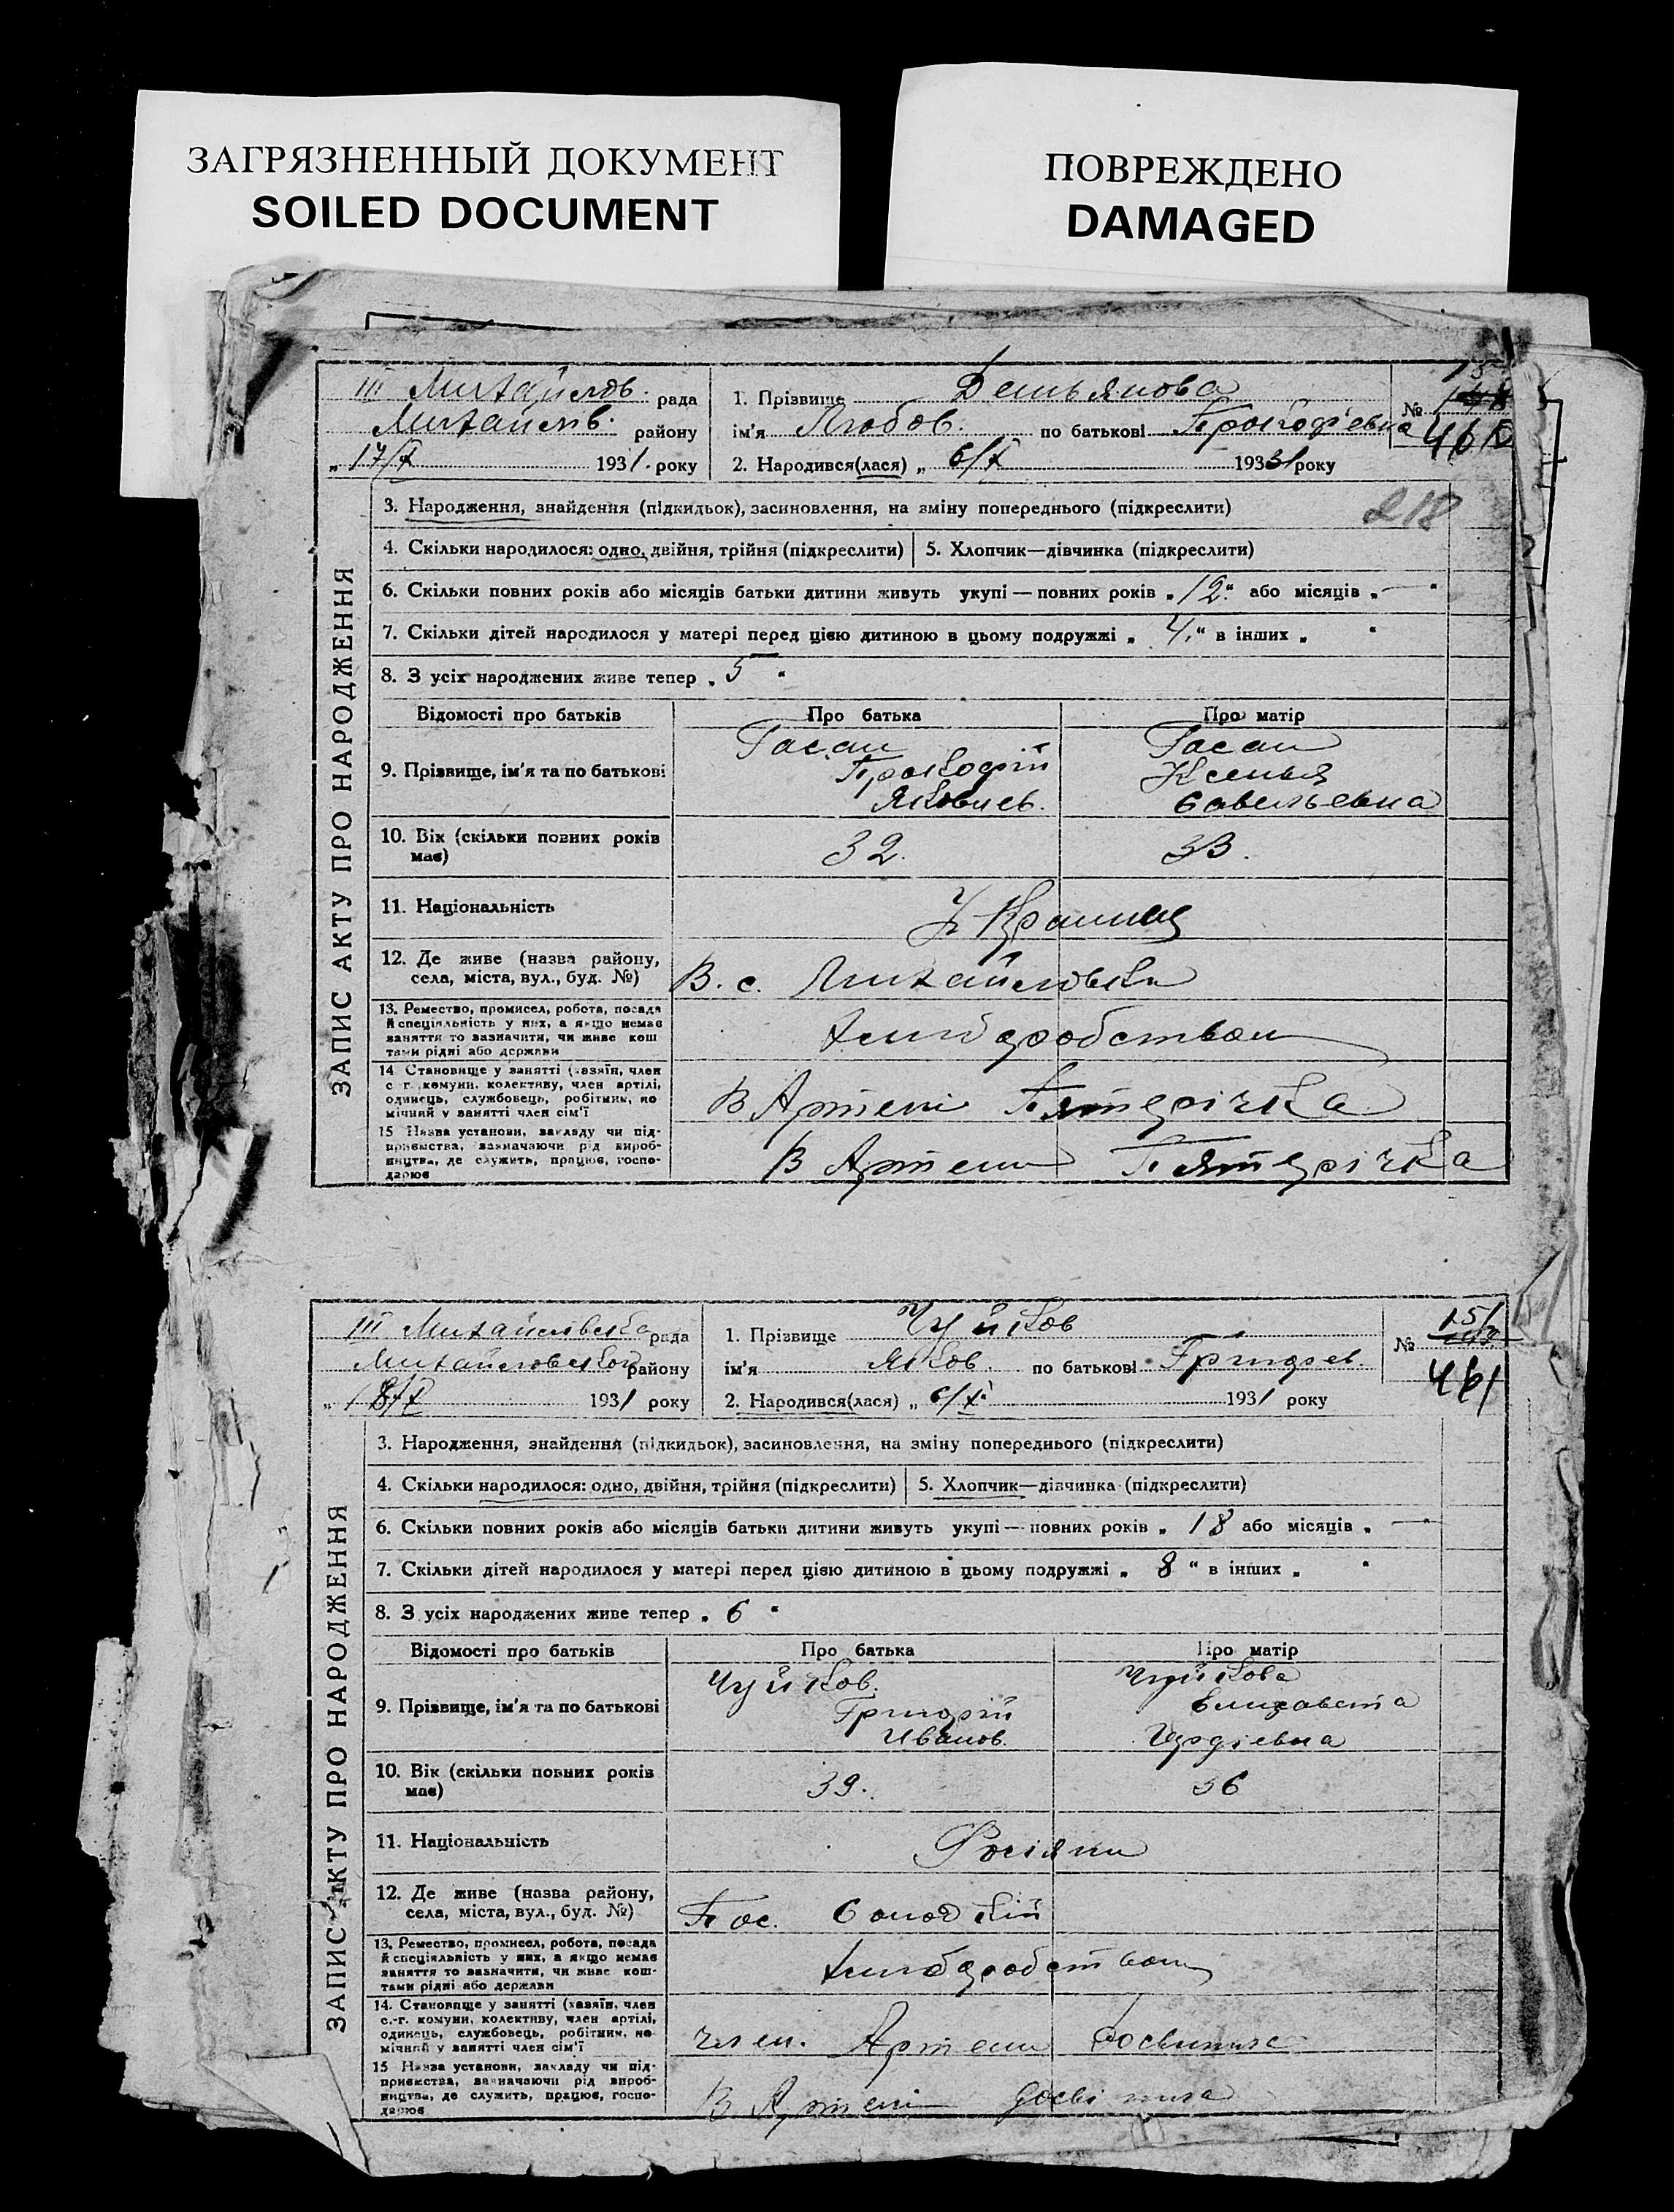 ЗАГРЯЗНЕННЫЙ ДОКУМЕНТ
SOILED DOCUMENT
ПОВРЕЖДЕНО
DAMAGED
III Михайлов. рада
Михайлів. району
„ 17/X 1931. року
1. Прізвище Демьянова
ім'я Любов. по батькові Прокофіевна
2. Народився(лася) „ 6/X 1931 року
№
460
218
ЗАПИС АКТУ ПРО НАРОДЖЕННЯ
3. Народження, знайдення (підкидьок), засиновлення, на зміну попереднього (підкреслити)
4. Скільки народилося: одно, двійня, трійня (підкреслити) 5. Хлопчик—дівчинка (підкреслити)
6. Скільки повних років або місяців батьки дитини живуть укупі — повних років „ 12 “ або місяців „ — “
7. Скільки дітей народилося у матері перед цією дитиною в цьому подружжі „ 4. “ в інших „ “
8. З усіх народжених живе тепер „ 5 “
Відомості про батьків Про батька Про матір
9. Прізвище, ім'я та по батькові
Гасан
Прокофій
Яковлев.
Гасан
Ксенья
Савельевна
10. Вік (скільки повних років має)
32. 33.
11. Національність
Украинц
12. Де живе (назва району, села, міста, вул., буд. №)
В. с. Михайловки
13. Ремество, промисел, робота, посада й спеціяльність у них, а якщо немає заняття то зазначити, чи живе кош тами рідні або держави
хлибробством
14 Становище у занятті (хазяїн, член с-г. комуни, колективу, член артілі, одинець, службовець, робітник, помічний у занятті член сім'ї
В Артели Пятерічка
15 Назва установи, закладу чи підприємства, зазначаючи рід виробництва, де служить, працює, господарює
В Артели Пятерічка
III Михайловска рада
Михайловской району
„ 18/X 1931 року
1. Прізвище Чуйков
ім'я Яков. по батькові Григорьев.
2. Народився(лася) „ 6/X 1931 року
№ 151
461
ЗАПИС АКТУ ПРО НАРОДЖЕННЯ
3. Народження, знайдення (підкидьок), засиновлення, на зміну попереднього (підкреслити)
4. Скільки народилося: одно, двійня, трійня (підкреслити) 5. Хлопчик—дівчинка (підкреслити)
6. Скільки повних років або місяців батьки дитини живуть укупі — повних років „ 18 або місяців „ — “
7. Скільки дітей народилося у матері перед цією дитиною в цьому подружжі „ 8 “ в інших „ “
8. З усіх народжених живе тепер „ 6 “
Відомості про батьків Про батька Про матір
9. Прізвище, ім'я та по батькові
Чуйков.
Григорій
Иванов.
Чуйкова
Елизавета
10. Вік (скільки повних років має)
39. 36
11. Національність
Росіяни
12. Де живе (назва району, села, міста, вул., буд. №)
Пос.
13. Ремество, промисел, робота, посада й спеціяльність у них, а якщо немає заняття то зазначити, чи живе коштами рідні або держави
хлибробством
14. Становище у занятті (хазяїн, член с.-г. комуни, колективу, член артілі, одинець, службовець, робітник, помічний у занятті член сім'ї
член. Артели
15 Назва установи, закладу чи підприємства, зазначаючи рід виробництва, де служить, працює, господарює
В Артели